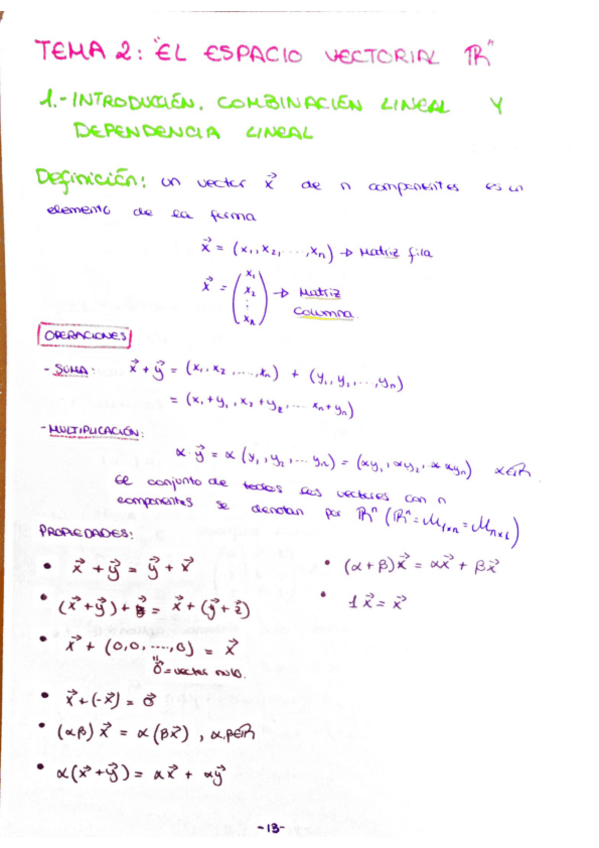 TEMA 2: "EL ESPACIO VECTORIAL ℝⁿ
1.- INTRODUCCIÓN. COMBINACIÓN LINEAL Y
DEPENDENCIA LINEAL
Definición: un vector x⃗ de n componentes es un
elemento de la forma
x⃗ = (x₁, x₂, ..., xₙ) → Matriz fila
x⃗ = (x₁ x₂ ⋮ xₙ) → Matriz
Columna.
OPERACIONES
- SUMA: x⃗ + y⃗ = (x₁, x₂, ..., xₙ) + (y₁, y₁, ..., yₙ)
= (x₁+y₁, x₂+y₂, ... xₙ+yₙ)
- MULTIPLICACIÓN:
α · y⃗ = α (y₁, y₂, ... yₙ) = (αy₁, αy₂, αyₙ) α∈ℝ
El conjunto de todos los vectores con n
componentes se denotan por ℝⁿ (ℝⁿ = M₁ₓₙ = Mₙₓ₁)
PROPIEDADES:
• x⃗ + y⃗ = y⃗ + x⃗
• (x⃗ + y⃗) + = x⃗ + (y⃗ + z⃗)
• x⃗ + (0,0, ..., 0) = x⃗
"
0⃗ = vector nulo.
• x⃗ + (-x⃗) = 0⃗
• (αβ) x⃗ = α (βx⃗), α,β∈ℝ
• α(x⃗ + y⃗) = αx⃗ + αy⃗
• (α + β)x⃗ = αx⃗ + βx⃗
• 1x⃗ = x⃗
-13-